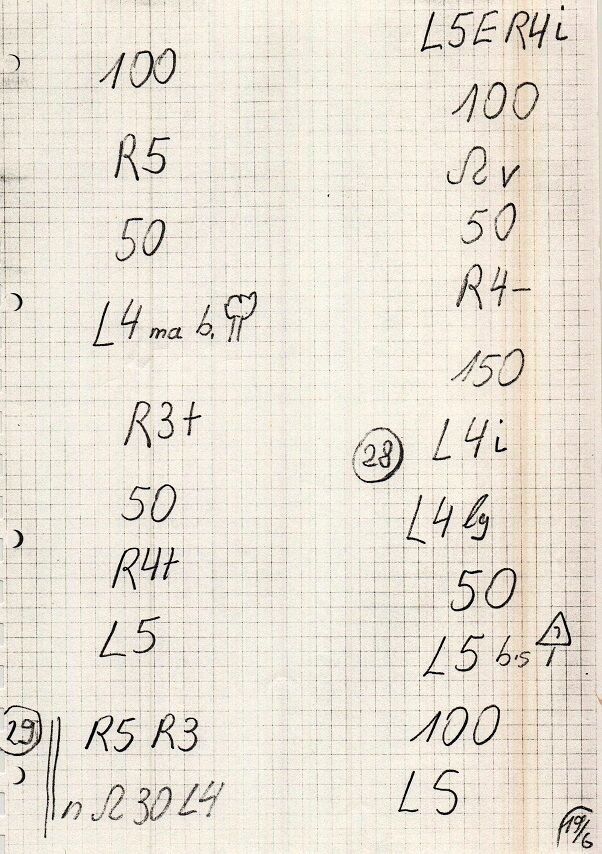 100
R5
50
L4 ma b.
R3+
50
R4+
L5
29
R5 R3
n Ω 30 L4
L5 E R4i
100
Ω v
50
R4-
150
28
L4i
L4 lg
50
L5 b.s
100
L5
19/6